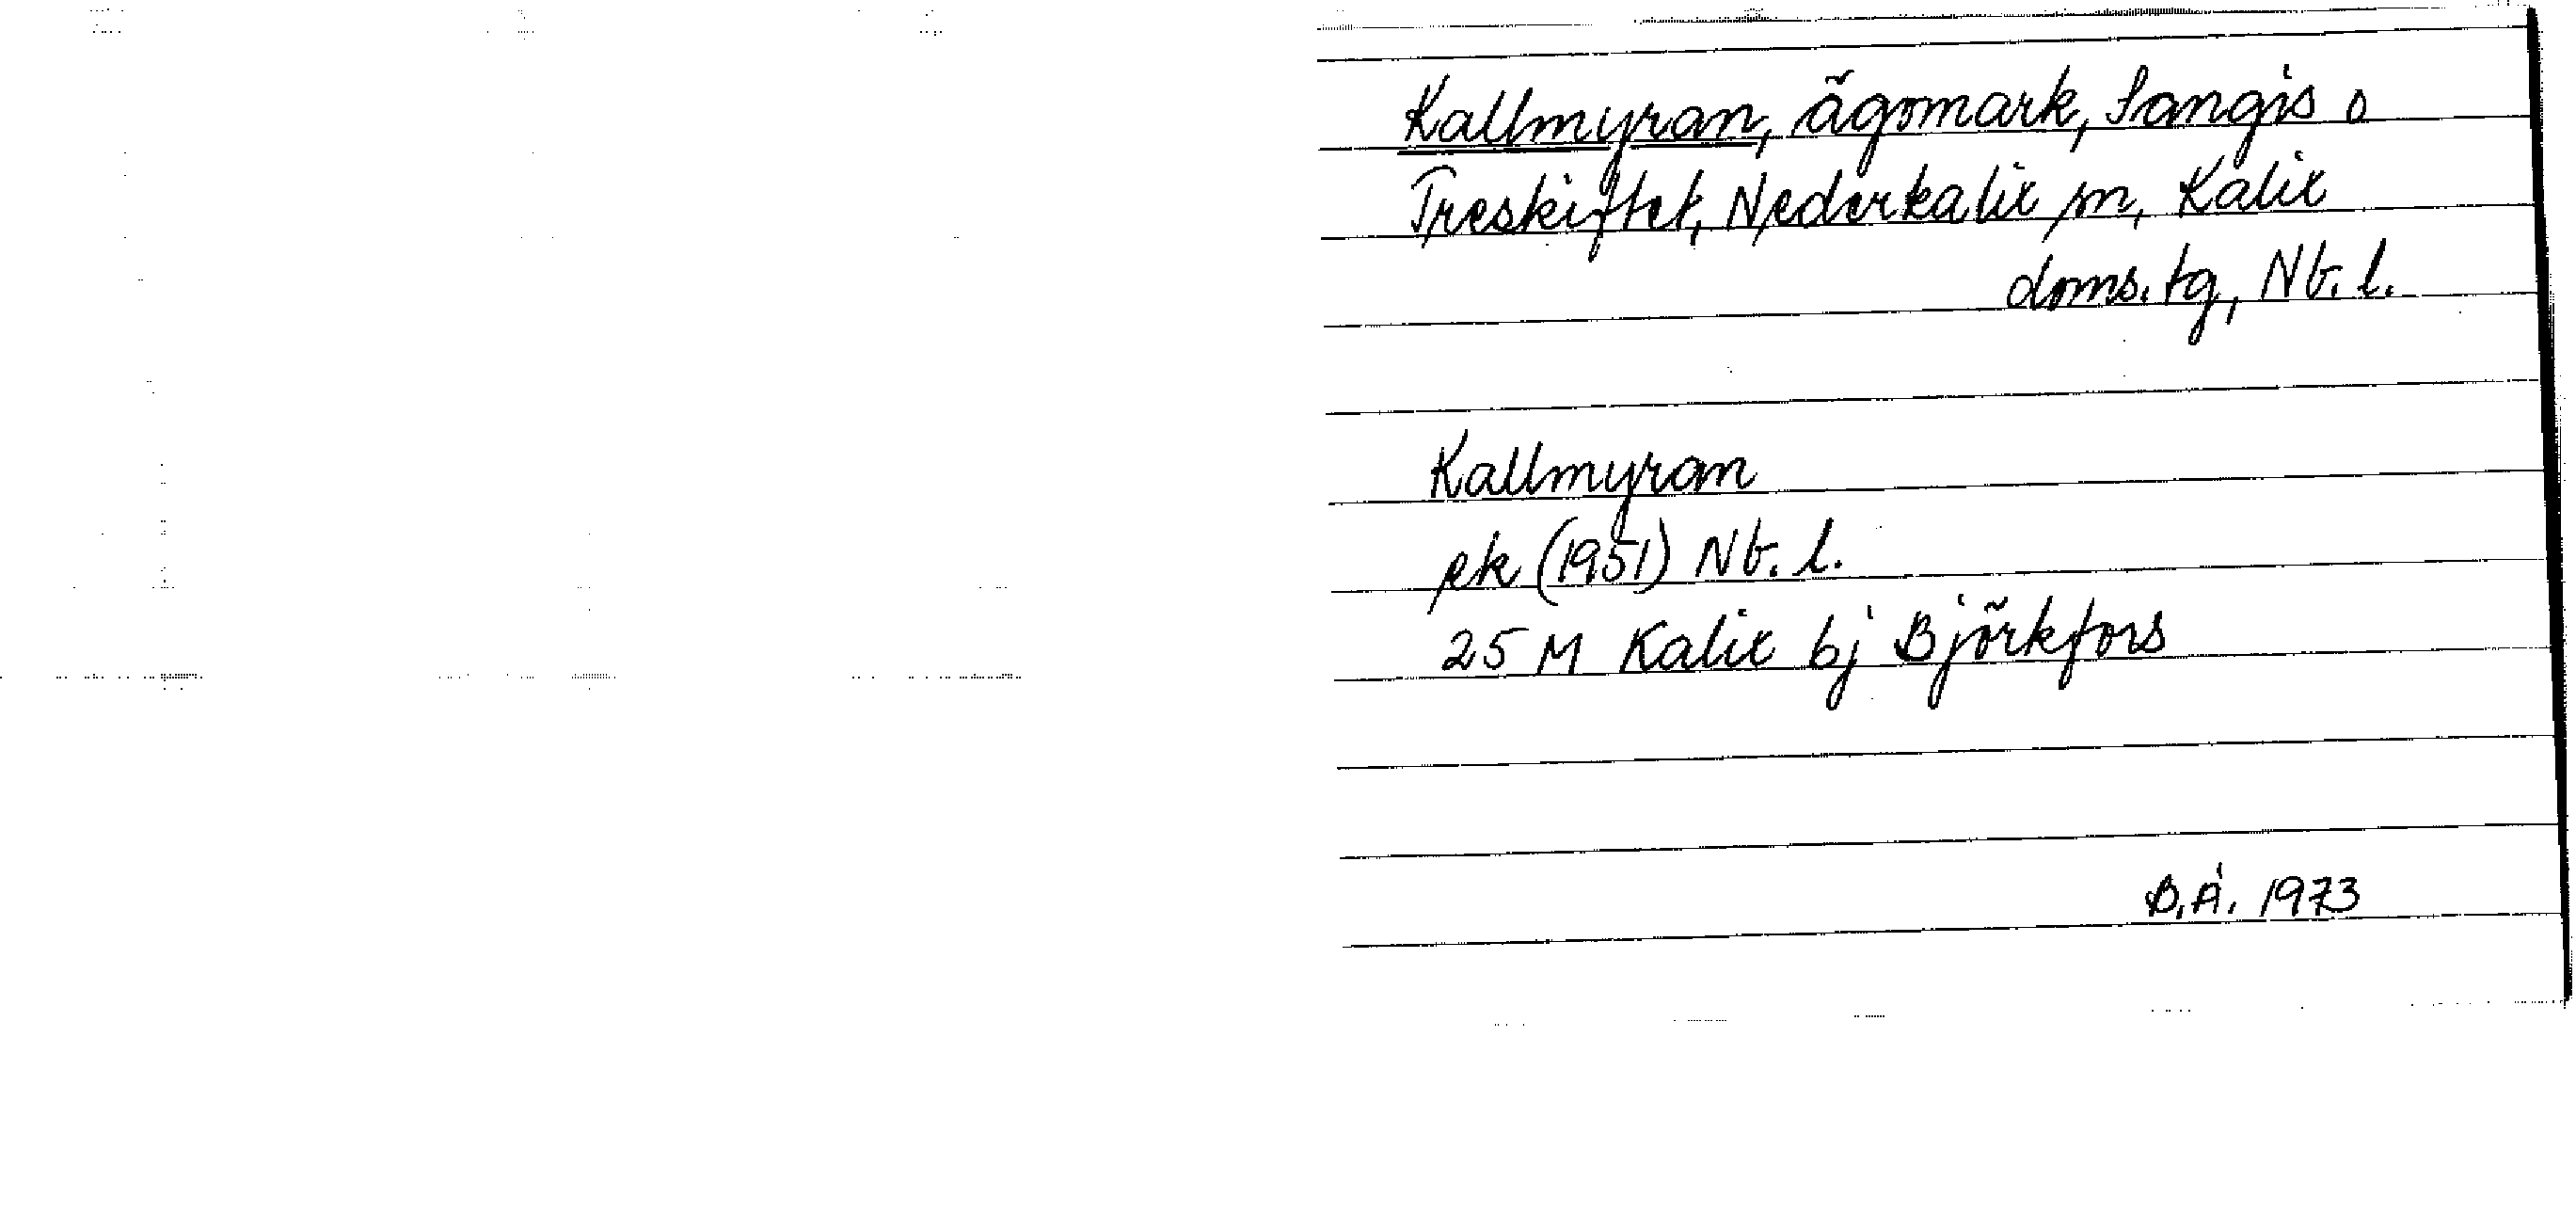 Kallmyran, ägomark, Sangis o
Treskiftet, Nederkalix sn, Kalix
doms. tg, Nb. l.
Kallmyran
ek (1951) Nb. l.
25 M Kalix bj Björkfors
B.Å. 1973